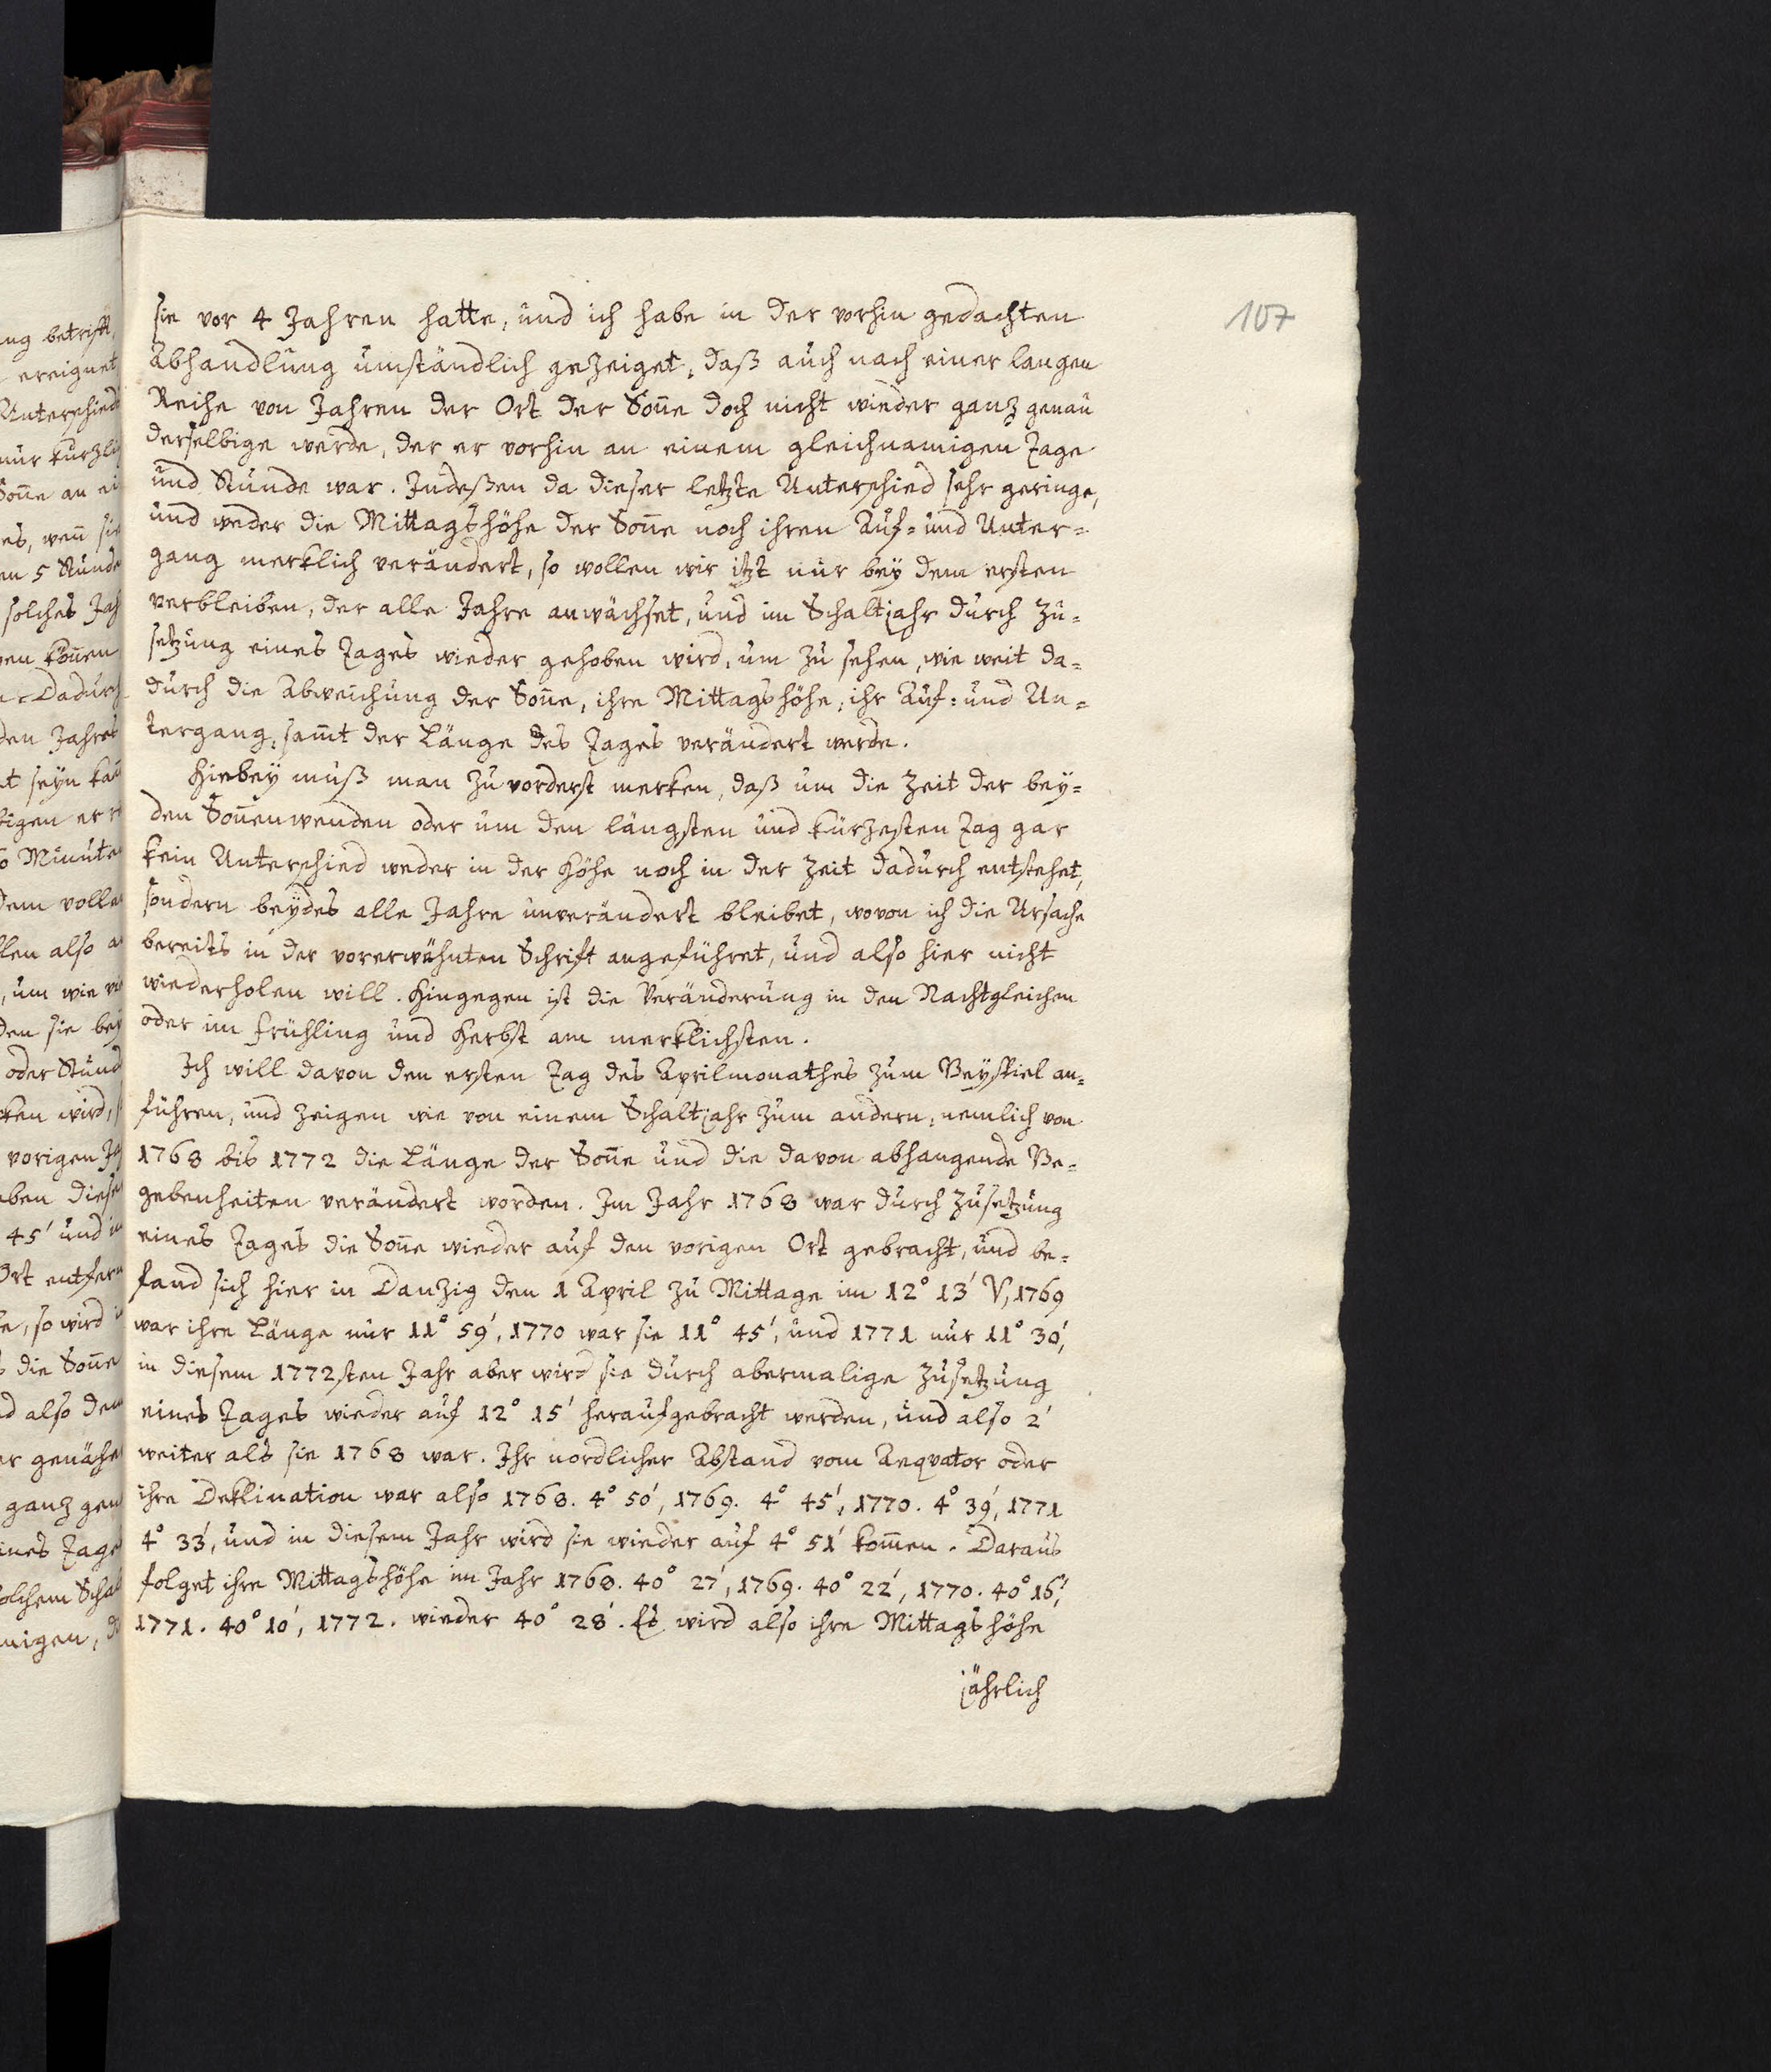 107
sie vor 4 Jahren hatte, und ich habe in der vorhin gedachten
Abhandlung umständlich gezeiget, daß auch nach einer langen
Reihe von Jahren der Ort der Soñe doch nicht wieder ganz genau
derselbige werde, der er vorhin an einem gleichnamigen Tage
und Stunde war. Indeßen da dieser letzte Unterschied sehr geringe,
und weder die Mittagshöhe der Soñe noch ihren Auf= und Unter=
gang merklich verändert, so wollen wir itzt nur bey dem ersten
verbleiben, der alle Jahre anwächset, und im Schaltjahr durch Zu=
setzung eines Tages wieder gehoben wird, um zu sehen, wie weit da=
durch die Abweichung der Soñe, ihre Mittagshöhe, ihr Auf= und Un=
tergang, sam̃t der Länge des Tages verändert werde.
Hiebey muß man zuvorderst merken, daß um die Zeit der bey=
den Soñenwenden oder um den längsten und kürzesten Tag gar
kein Unterschied weder in der Höhe noch in der Zeit dadurch entstehet,
sondern beydes alle Jahre unverändert bleibet, wovon ich die Ursache
bereits in der vorerwähnten Schrift angeführet, und also hier nicht
wiederholen will. Hingegen ist die Veränderung in den Nachtgleichen
oder im Frühling und Herbst am merklichsten.
Ich will davon den ersten Tag des Aprilmonathes zum Beyspiel an=
führen, und zeigen wie von einem Schaltjahr zum andern, nemlich von
1768 bis 1772 die Länge der Soñe und die davon abhangende Be=
gebenheiten verändert worden. Im Jahr 1768 war durch Zusetzung
eines Tages die Soñe wieder auf den vorigen Ort gebracht, und be=
fand sich hier in Danzig den 1 April zu Mittage im 12° 13′ ♈, 1769
war ihre Länge nur 11° 59′, 1770 war sie 11° 45′, und 1771 nur 11° 30′,
in diesem 1772sten Jahr aber wird sie durch abermalige Zusetzung
eines Tages wieder auf 12° 15′ heraufgebracht werden, und also 2′
weiter als sie 1768 war. Ihr nordlicher Abstand vom Aequator oder
ihre Deklination war also 1768. 4° 50′, 1769. 4° 45′, 1770. 4° 39′, 1771
4° 33′, und in diesem Jahr wird sie wieder auf 4° 51′ kom̃en. Daraus
folget ihre Mittagshöhe im Jahr 1768. 40° 27′, 1769. 40° 22′, 1770. 40° 16′,
1771. 40° 10′, 1772. wieder 40° 28′. Es wird also ihre Mittagshöhe
jährlich